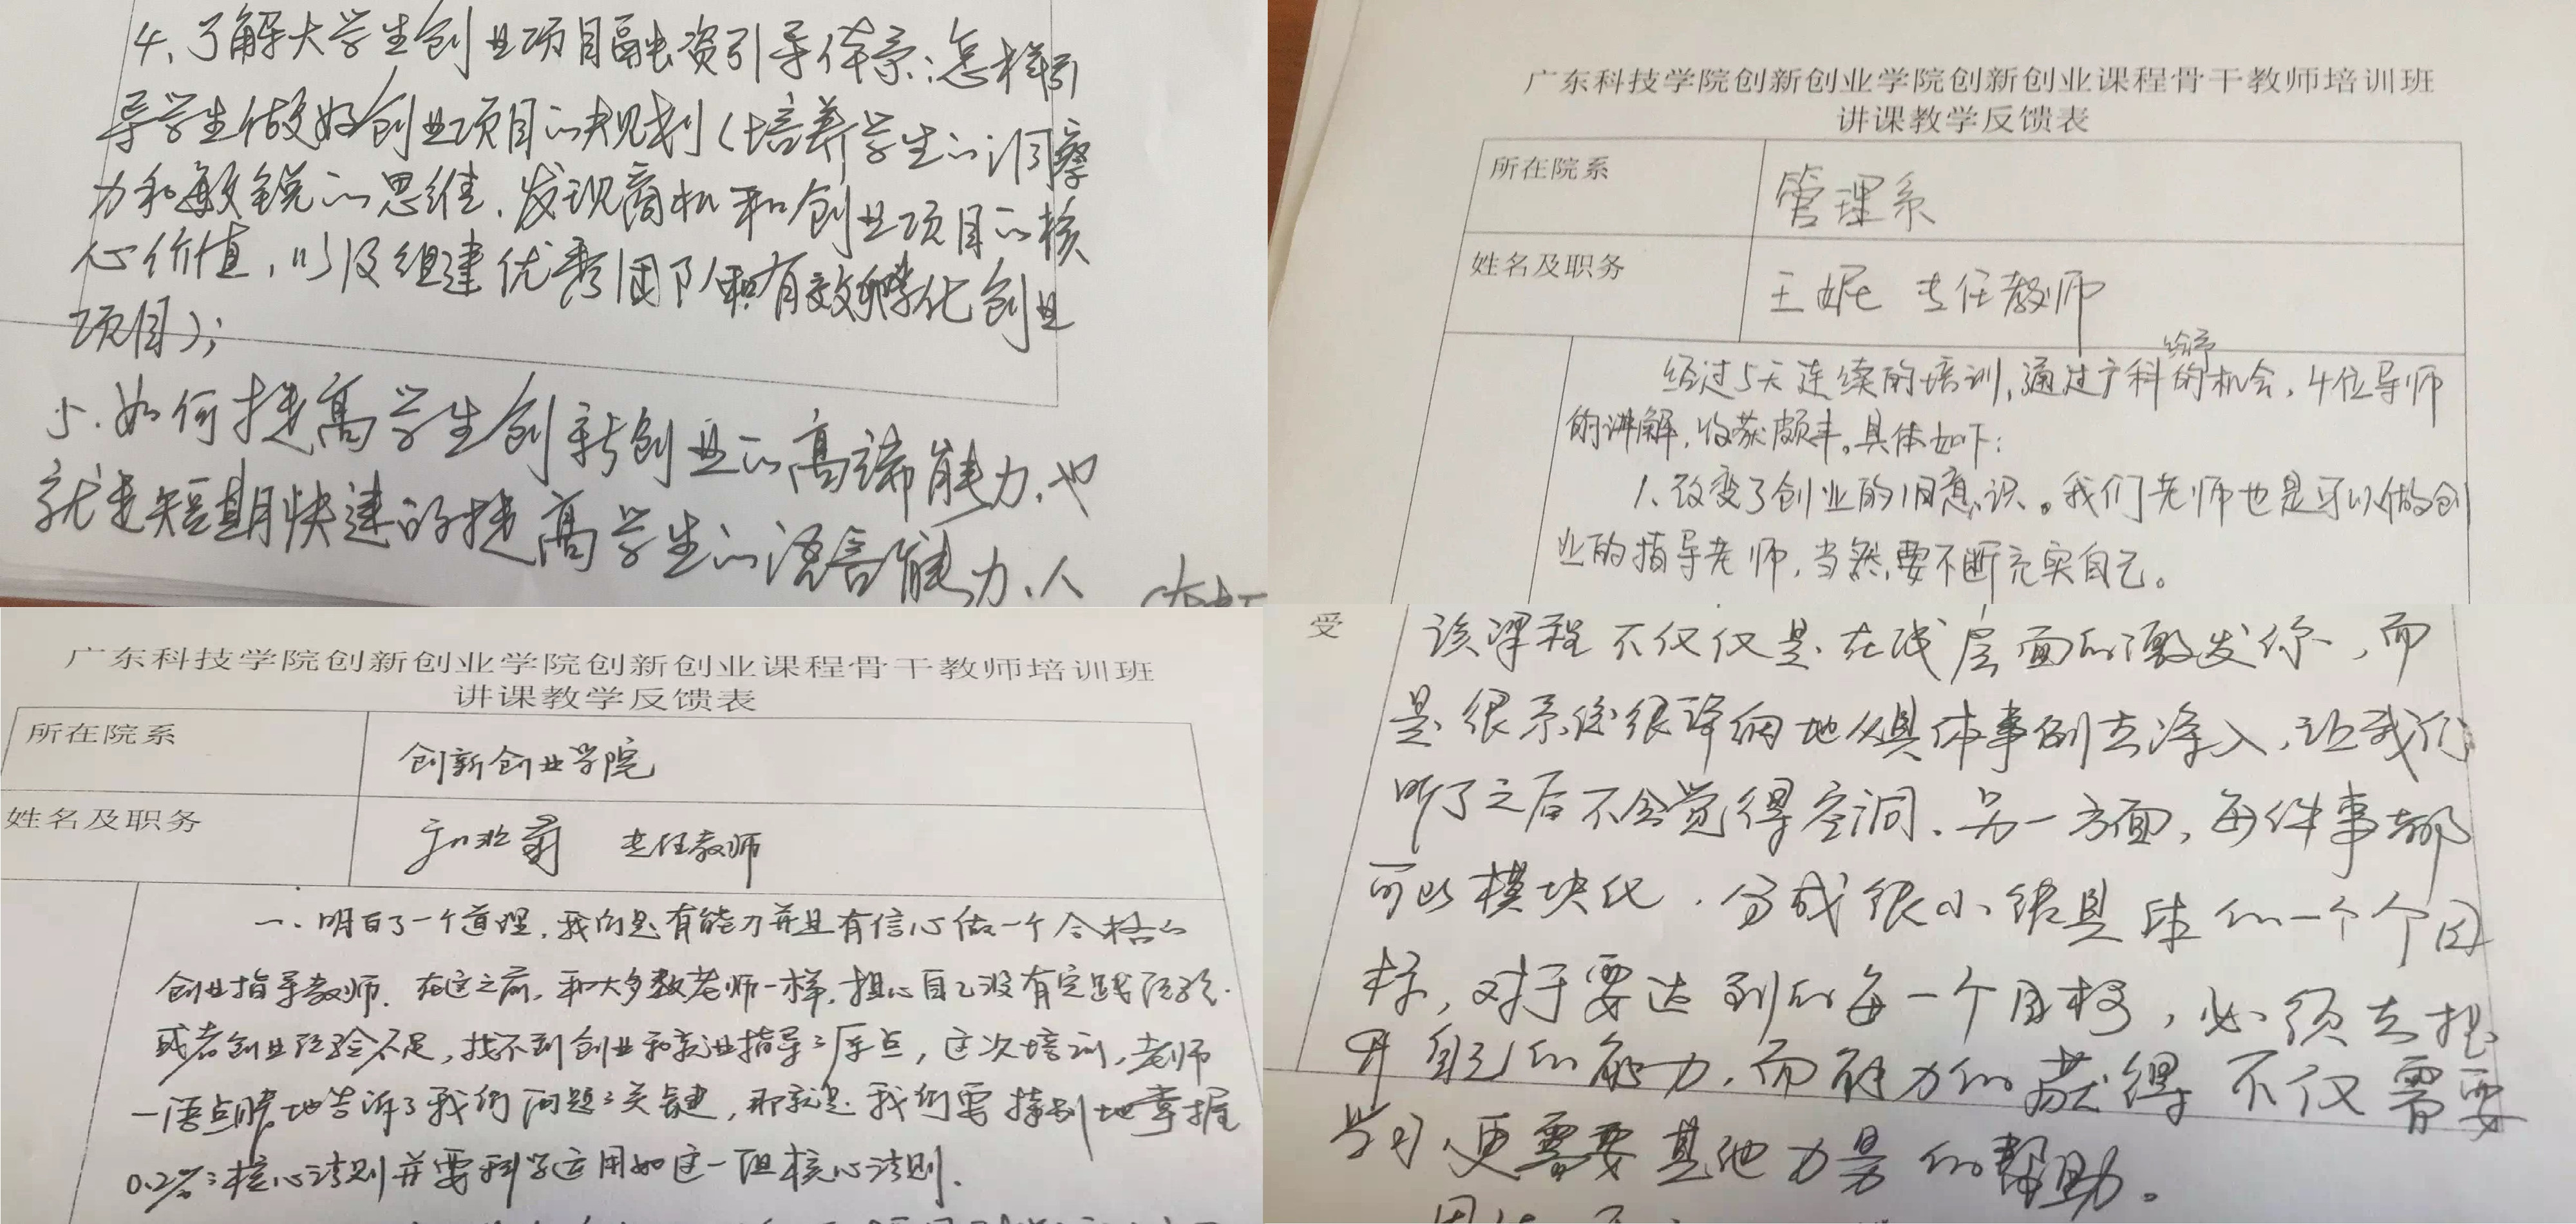 4、了解大学生创业项目融资引导体系:怎样引
导学生做好创业项目的规划(培养学生的洞察
力和敏锐的思维,发现商机和创业项目的核
心价值,以及组建优秀团队和有效孵化创业
项目);
5.如何提高学生创新创业的高端能力,也
就是短期快速的提高学生的语言能力、人
广东科技学院创新创业学院创新创业课程骨干教师培训班
讲课教学反馈表
所在院系
管理系
姓名及职务
王妮 专任教师
给予
经过5天连续的培训,通过广科的机会,4位导师
的讲解,收获颇丰。具体如下:
1、改变了创业的旧意识。我们老师也是可以做创
业的指导老师,当然,要不断充实自己。
广东科技学院创新创业学院创新创业课程骨干教师培训班
讲课教学反馈表
所在院系
创新创业学院
姓名及职务
专任教师
一、明白了一个道理,我们是有能力并且有信心做一个合格的
创业指导教师。在这之前,和大多数老师一样,担心自己没有实践经验.
或者创业经验不足,找不到创业和就业指导之库点,这次培训,老师
一语点睛地告诉了我们问题之关键,那就是我们需特别地掌握
0.2%之核心法则并要科学运用如这一组核心法则.
受
该课程不仅仅是在浅层面的激发你,而
是很系统很详细地从具体事例去深入,让我们
听了之后不会觉得空洞.另一方面,每件事都
可以模块化.分成很小很具体的一个个目
标,对于要达到的每一个目标,必须去提
升自己的能力,而能力的获得不仅需要
学习、更需要其他力量的帮助。